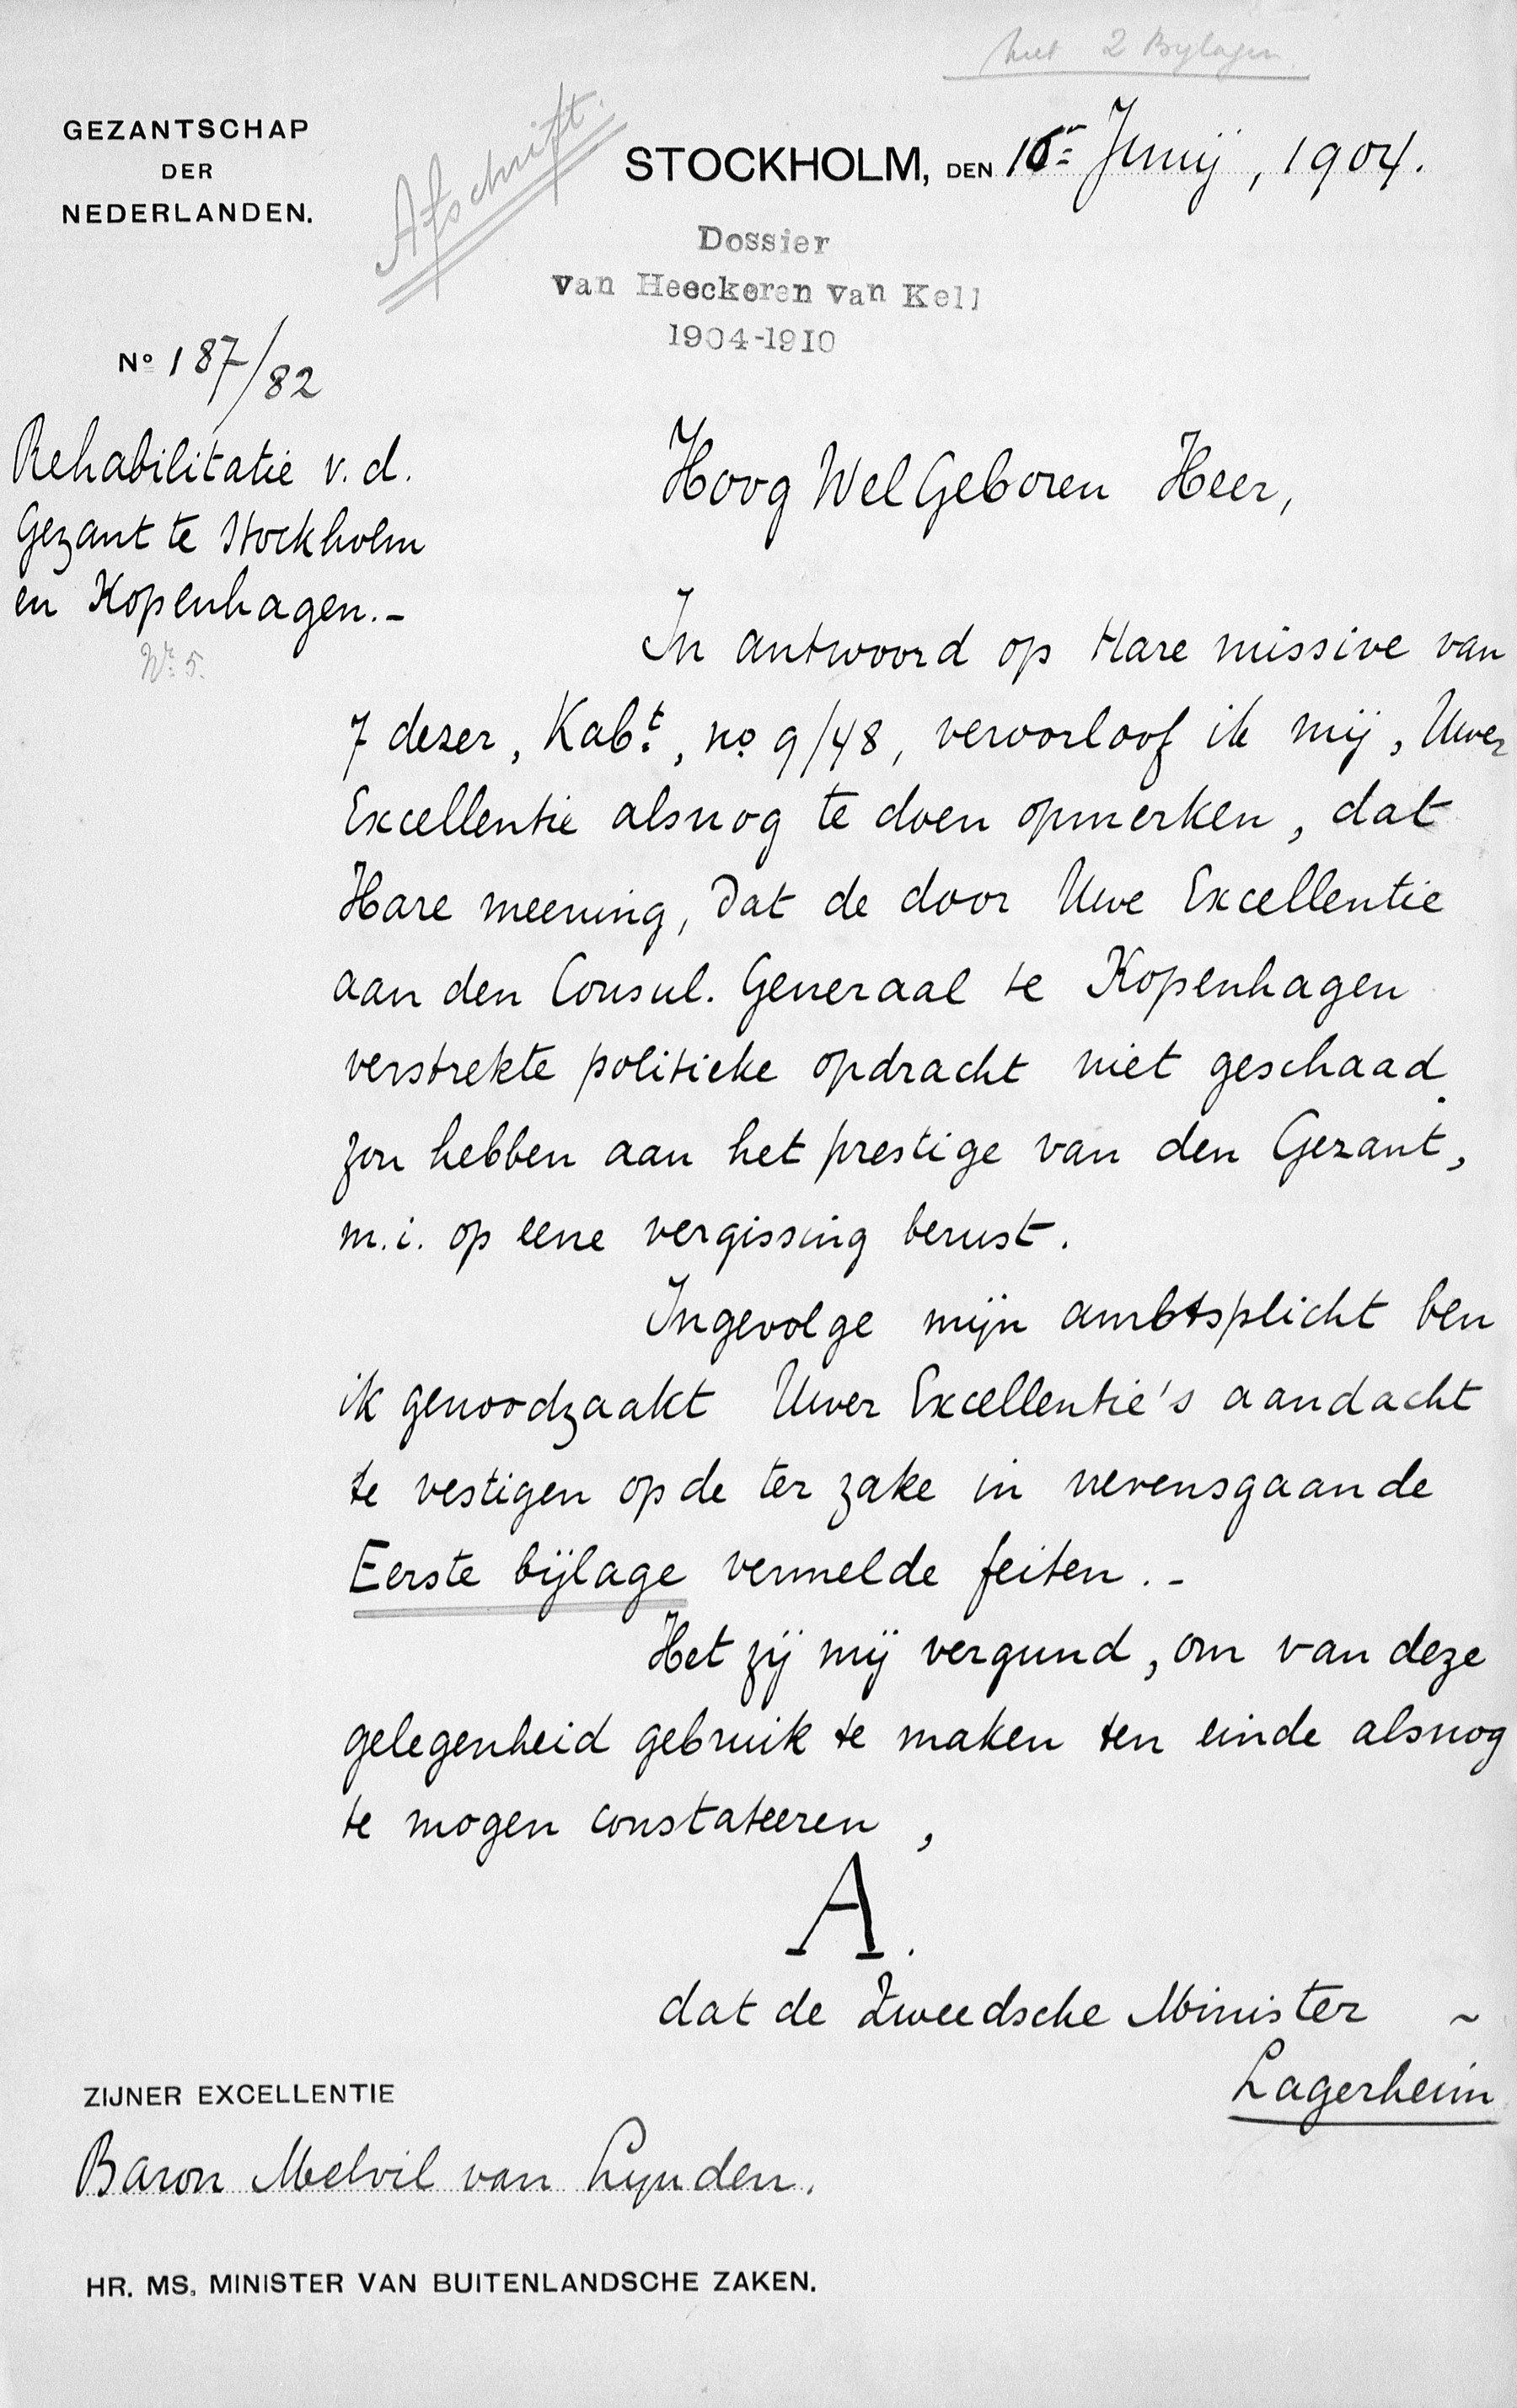 met 2 Bylagen
GEZANTSCHAP
DER
NEDERLANDEN.
Afschrift.
STOCKHOLM, DEN Junij, 1904.
Dossier
van Heeckeren van Kell
1904-1910
Nº 187/82
Rehabilitatie v. d.
Gezant te Stockholm
en Kopenhagen.-
Nr. 5.
Hoog WelGeboren Heer,
In antwoord op Hare missive van
7 dezer, Kabt., no 9/48, veroorloof ik mij, Uwer
Excellentie alsnog te doen opmerken, dat
Hare meening, dat de door Uwe Excellentie
aan den Consul. Generaal te Kopenhagen
verstrekte politieke opdracht niet geschaad
zou hebben aan het prestige van den Gezant,
m.i. op eene vergissing berust.
Ingevolge mijn ambtsplicht ben
ik genoodzaakt Uwer Excellentie's aandacht
te vestigen op de ter zake in nevensgaande
Eerste bijlage vermelde feiten.-
Het zij mij vergund, om van deze
gelegenheid gebruik te maken ten einde alsnog
te mogen constateeren,
A.
dat de Zweedsche Minister ~
Lagerheim
ZIJNER EXCELLENTIE
Baron Melvil van Lynden.
HR. MS. MINISTER VAN BUITENLANDSCHE ZAKEN.